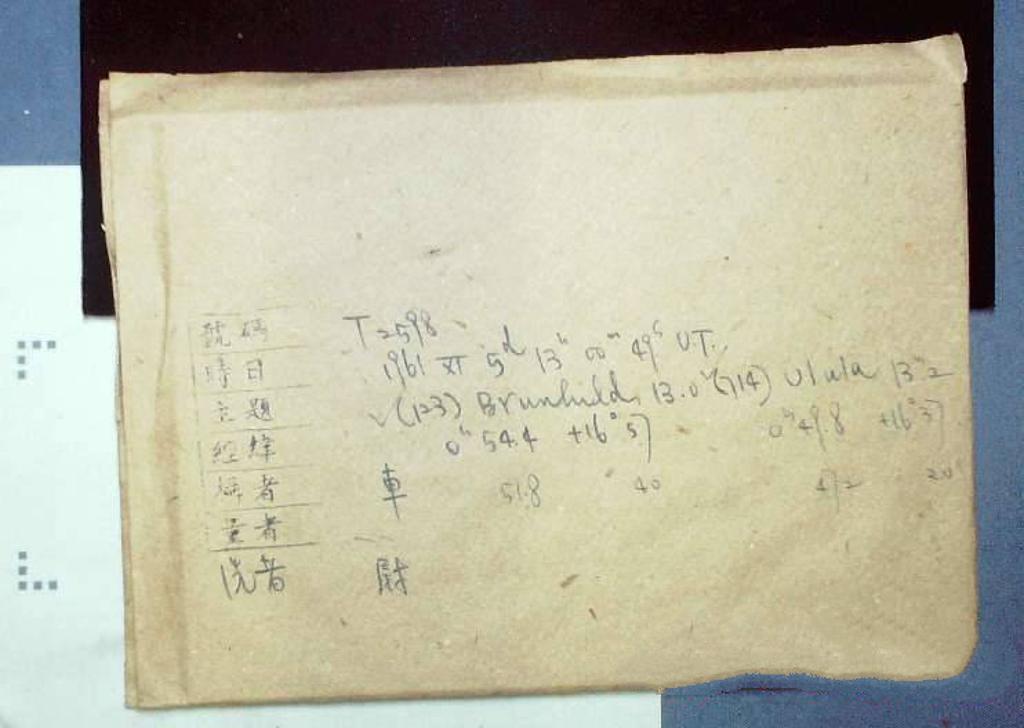 號碼 T2598
時日 1961 XI 5d 13h 00m 49s UT.
主題 √(123) Brunhild, 13.0m (714) Ulula 13m2
經緯 0h 54.4 +16° 57 0h 49.8 +16° 37
攝者 車 51.8 40 47.2 20
量者
洗者 尉